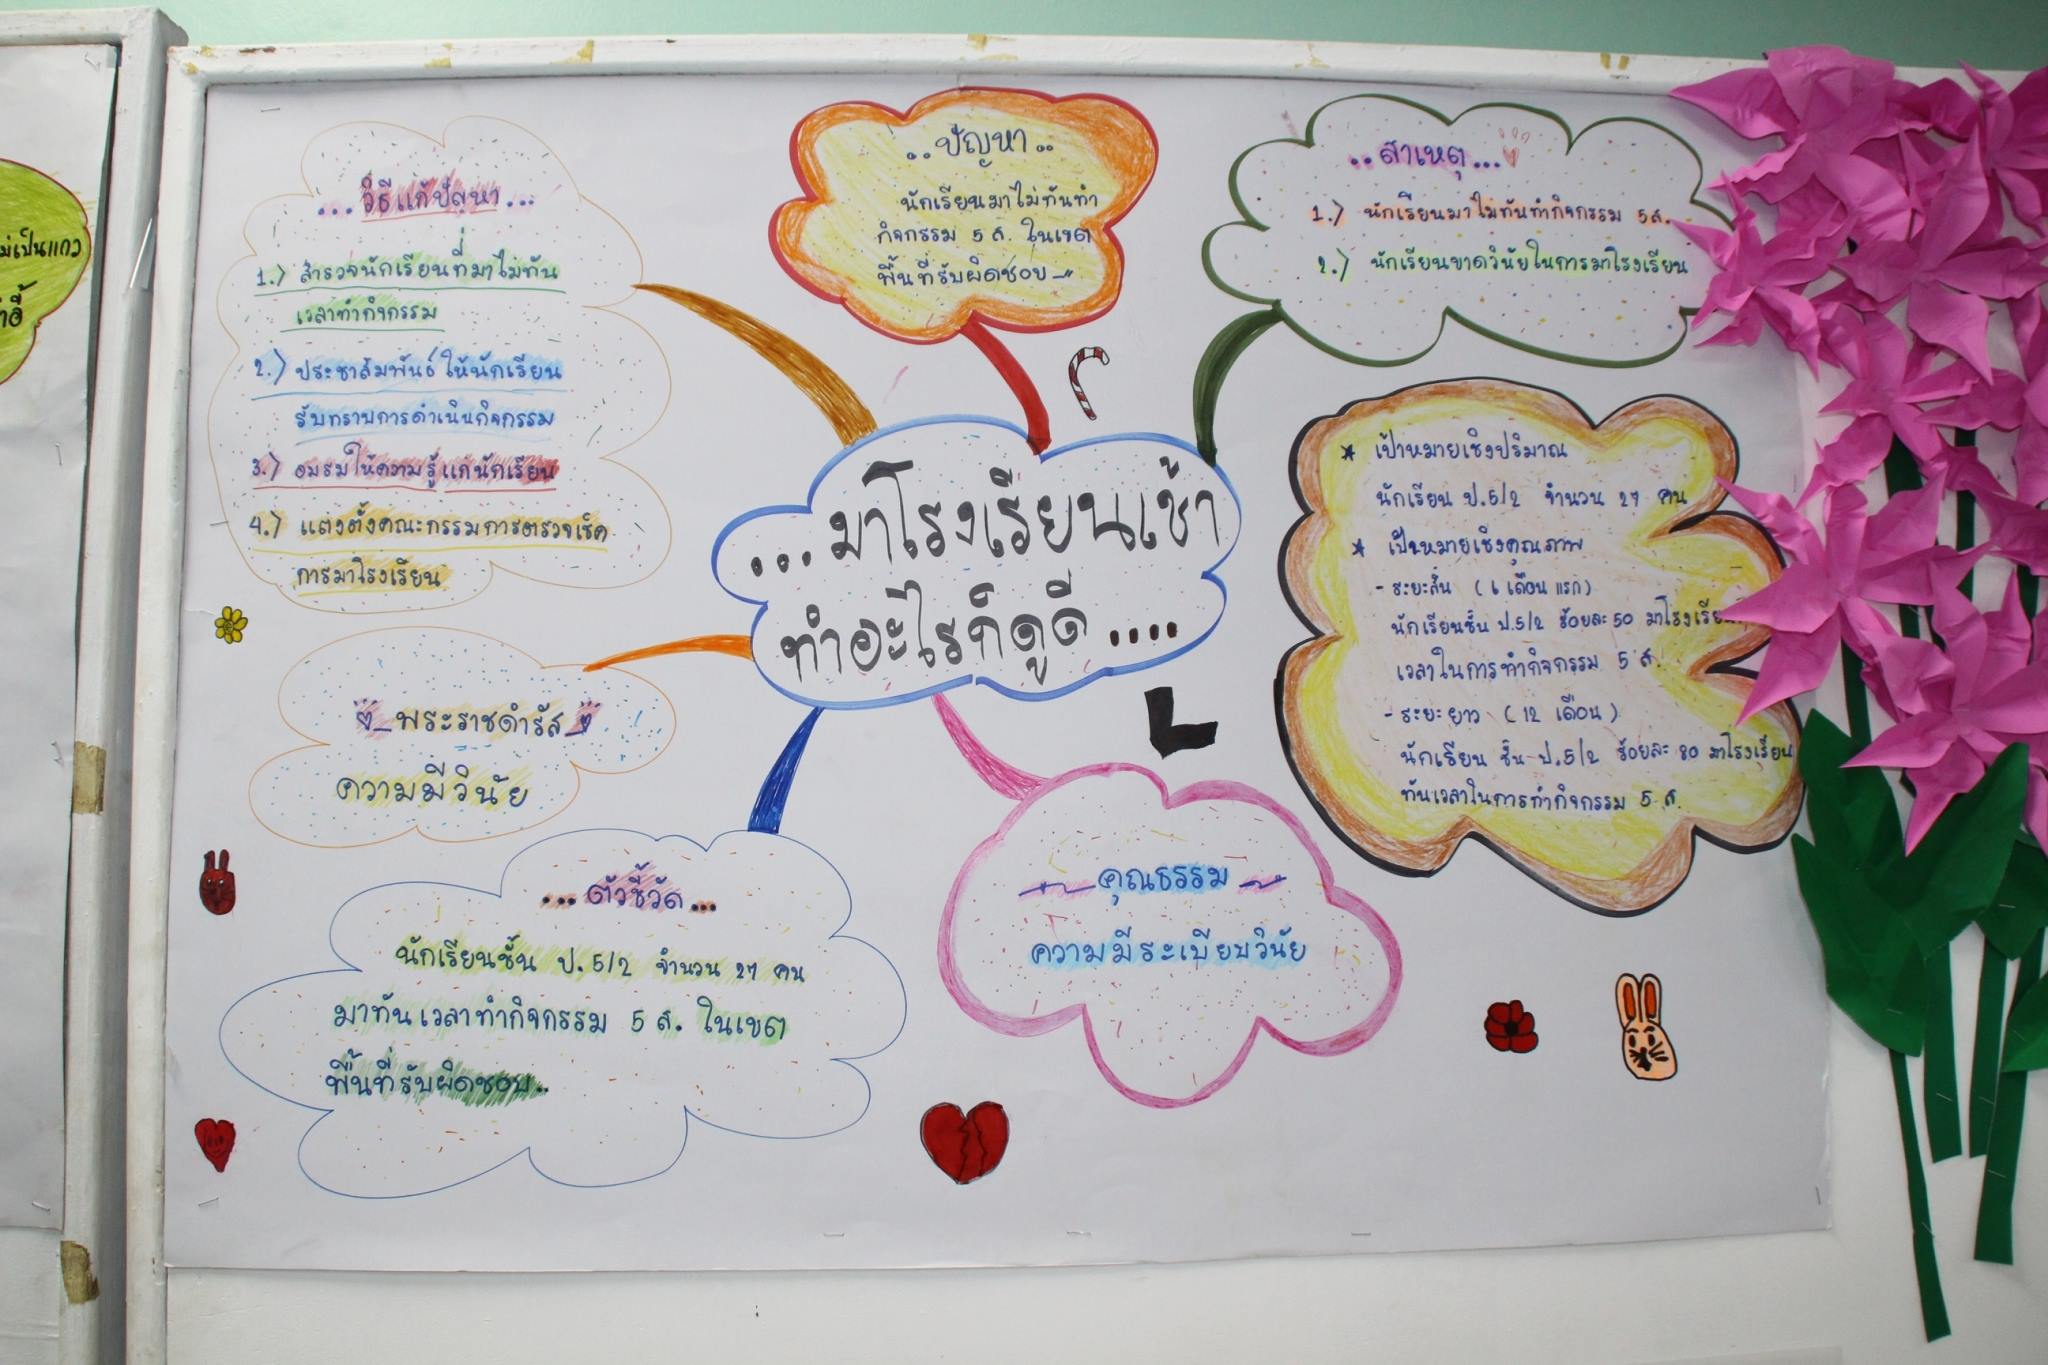 ...มาโรงเรียนเช้า
ทำอะไรก็ดูดี....
..ปัญหา..
นักเรียนมาไม่ทันทำ
กิจกรรม 5 ส. ในเขต
พื้นที่รับผิดชอบ
..สาเหตุ...
1.) นักเรียนมาไม่ทันทำกิจกรรม 5ส.
2.) นักเรียนขาดวินัยในการมาโรงเรียน
★ เป้าหมายเชิงปริมาณ
นักเรียน ป.5/2 จำนวน 27 คน
★ เป้าหมายเชิงคุณภาพ
- ระยะสั้น (6 เดือนแรก)
นักเรียนชั้น ป.5/2 ร้อยละ 50 มาโรงเรียน
เวลาในการทำกิจกรรม 5 ส.
- ระยะยาว (12 เดือน)
นักเรียน ชั้น ป.5/2 ร้อยละ 80 มาโรงเรียน
ทันเวลาในการทำกิจกรรม 5 ส.
คุณธรรม
ความมีระเบียบวินัย
...ตัวชี้วัด...
นักเรียนชั้น ป.5/2 จำนวน 27 คน
มาทันเวลาทำกิจกรรม 5 ส. ในเขต
พื้นที่รับผิดชอบ..
พระราชดำรัส
ความมีวินัย
...วิธีแก้ปัญหา...
1.) สำรวจนักเรียนที่มาไม่ทัน
เวลาทำกิจกรรม
2.) ประชาสัมพันธ์ให้นักเรียน
รับทราบการดำเนินกิจกรรม
3.) อบรมให้ความรู้แก่นักเรียน
4.) แต่งตั้งคณะกรรมการตรวจเช็ค
การมาโรงเรียน
ไม่เป็นแถว